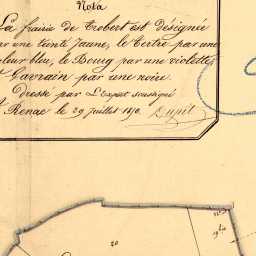 Nota
La frairie de Trobert est désignée
par une teinte Jaune, le Tertre par une
leur bleu, le Bourg par une violette,
t Gavrain par une noire.
Dressé par L'Expert soussigné
Renac le 29 Juillet 1870 Dupil
20
19